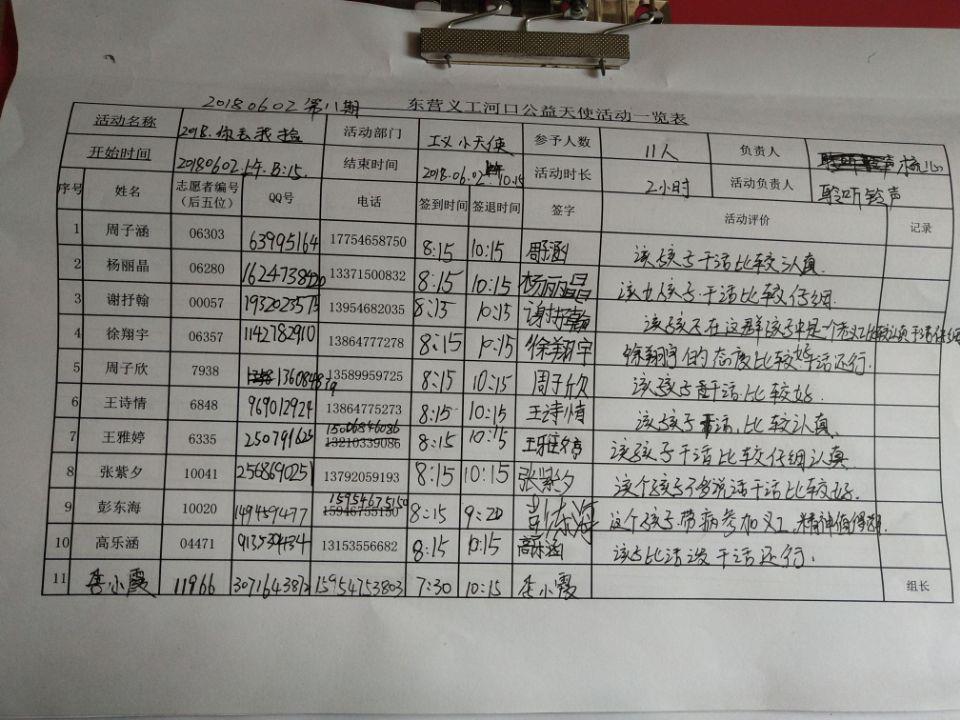 20180602 第八期 东营义工河口公益天使活动一览表
活动名称 2018.你丢我捡 活动部门 义工小天使 参予人数 11人 负责人
开始时间 20180602上午.8:15. 结束时间 2018.06.02 10:15 活动时长 2小时 活动负责人 聆听铃声
序号 姓名 志愿者编号（后五位） QQ号 电话 签到时间 签退时间 签字 活动评价 记录
1 周子涵 06303 63995164 17754658750 8:15 10:15 周子涵 该孩子干活比较认真.
2 杨丽晶 06280 13371500832 8:15 10:15 杨丽晶 该女孩子干活比较仔细.
3 谢抒翰 00057 13954682035 8:15 10:15 谢抒翰
4 徐翔宇 06357 1142782910 13864777278 8:15 10:15 徐翔宇 徐翔宇的态度比较好干活还行.
5 周子欣 7938 13589959725 8:15 10:15 周子欣 该孩子干活比较好.
6 王诗情 6848 969012924 13864775273 8:15 10:15 王诗情 该孩子干活,比较认真.
7 王雅婷 6335 250791625 15006846086 13210339086 8:15 10:15 王雅婷 该孩子干活比较仔细认真
8 张紫夕 10041 2568690251 13792059193 8:15 10:15 张紫夕 这个孩子不多说话干活比较好.
9 彭东海 10020 149459477 15954675150 15946755150 8:15 9:20 彭东海 这个孩子带病参加义工,精神值得
10 高乐涵 04471 913530434 13153556682 8:15 10:15 高乐涵 该子比活泼干活还行.
11 李小霞 11966 15954753803 7:30 10:15 李小霞 组长